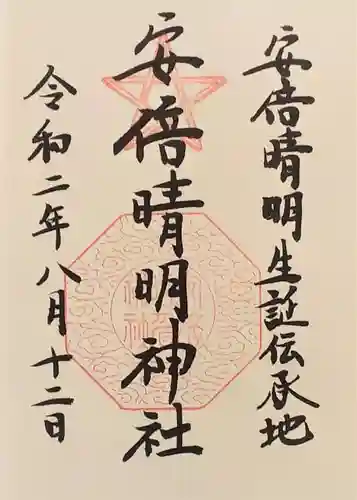 安倍晴明生誕伝承地
安倍晴明神社
令和二年八月十二日